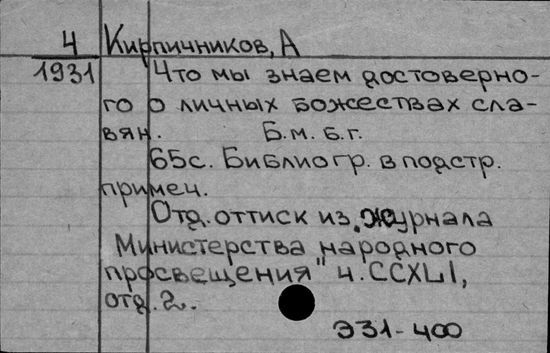 4 Кирпичников, А
1931 Что мы знаем достоверно-
го о личных божествах сла-
вян. Б.м. б.г.
65с. Библиогр. в подстр.
примеч.
Отд. оттиск из „журнала
Министерства народного
просвещения" ч. CCXLI,
отд. 2.
Э31-400